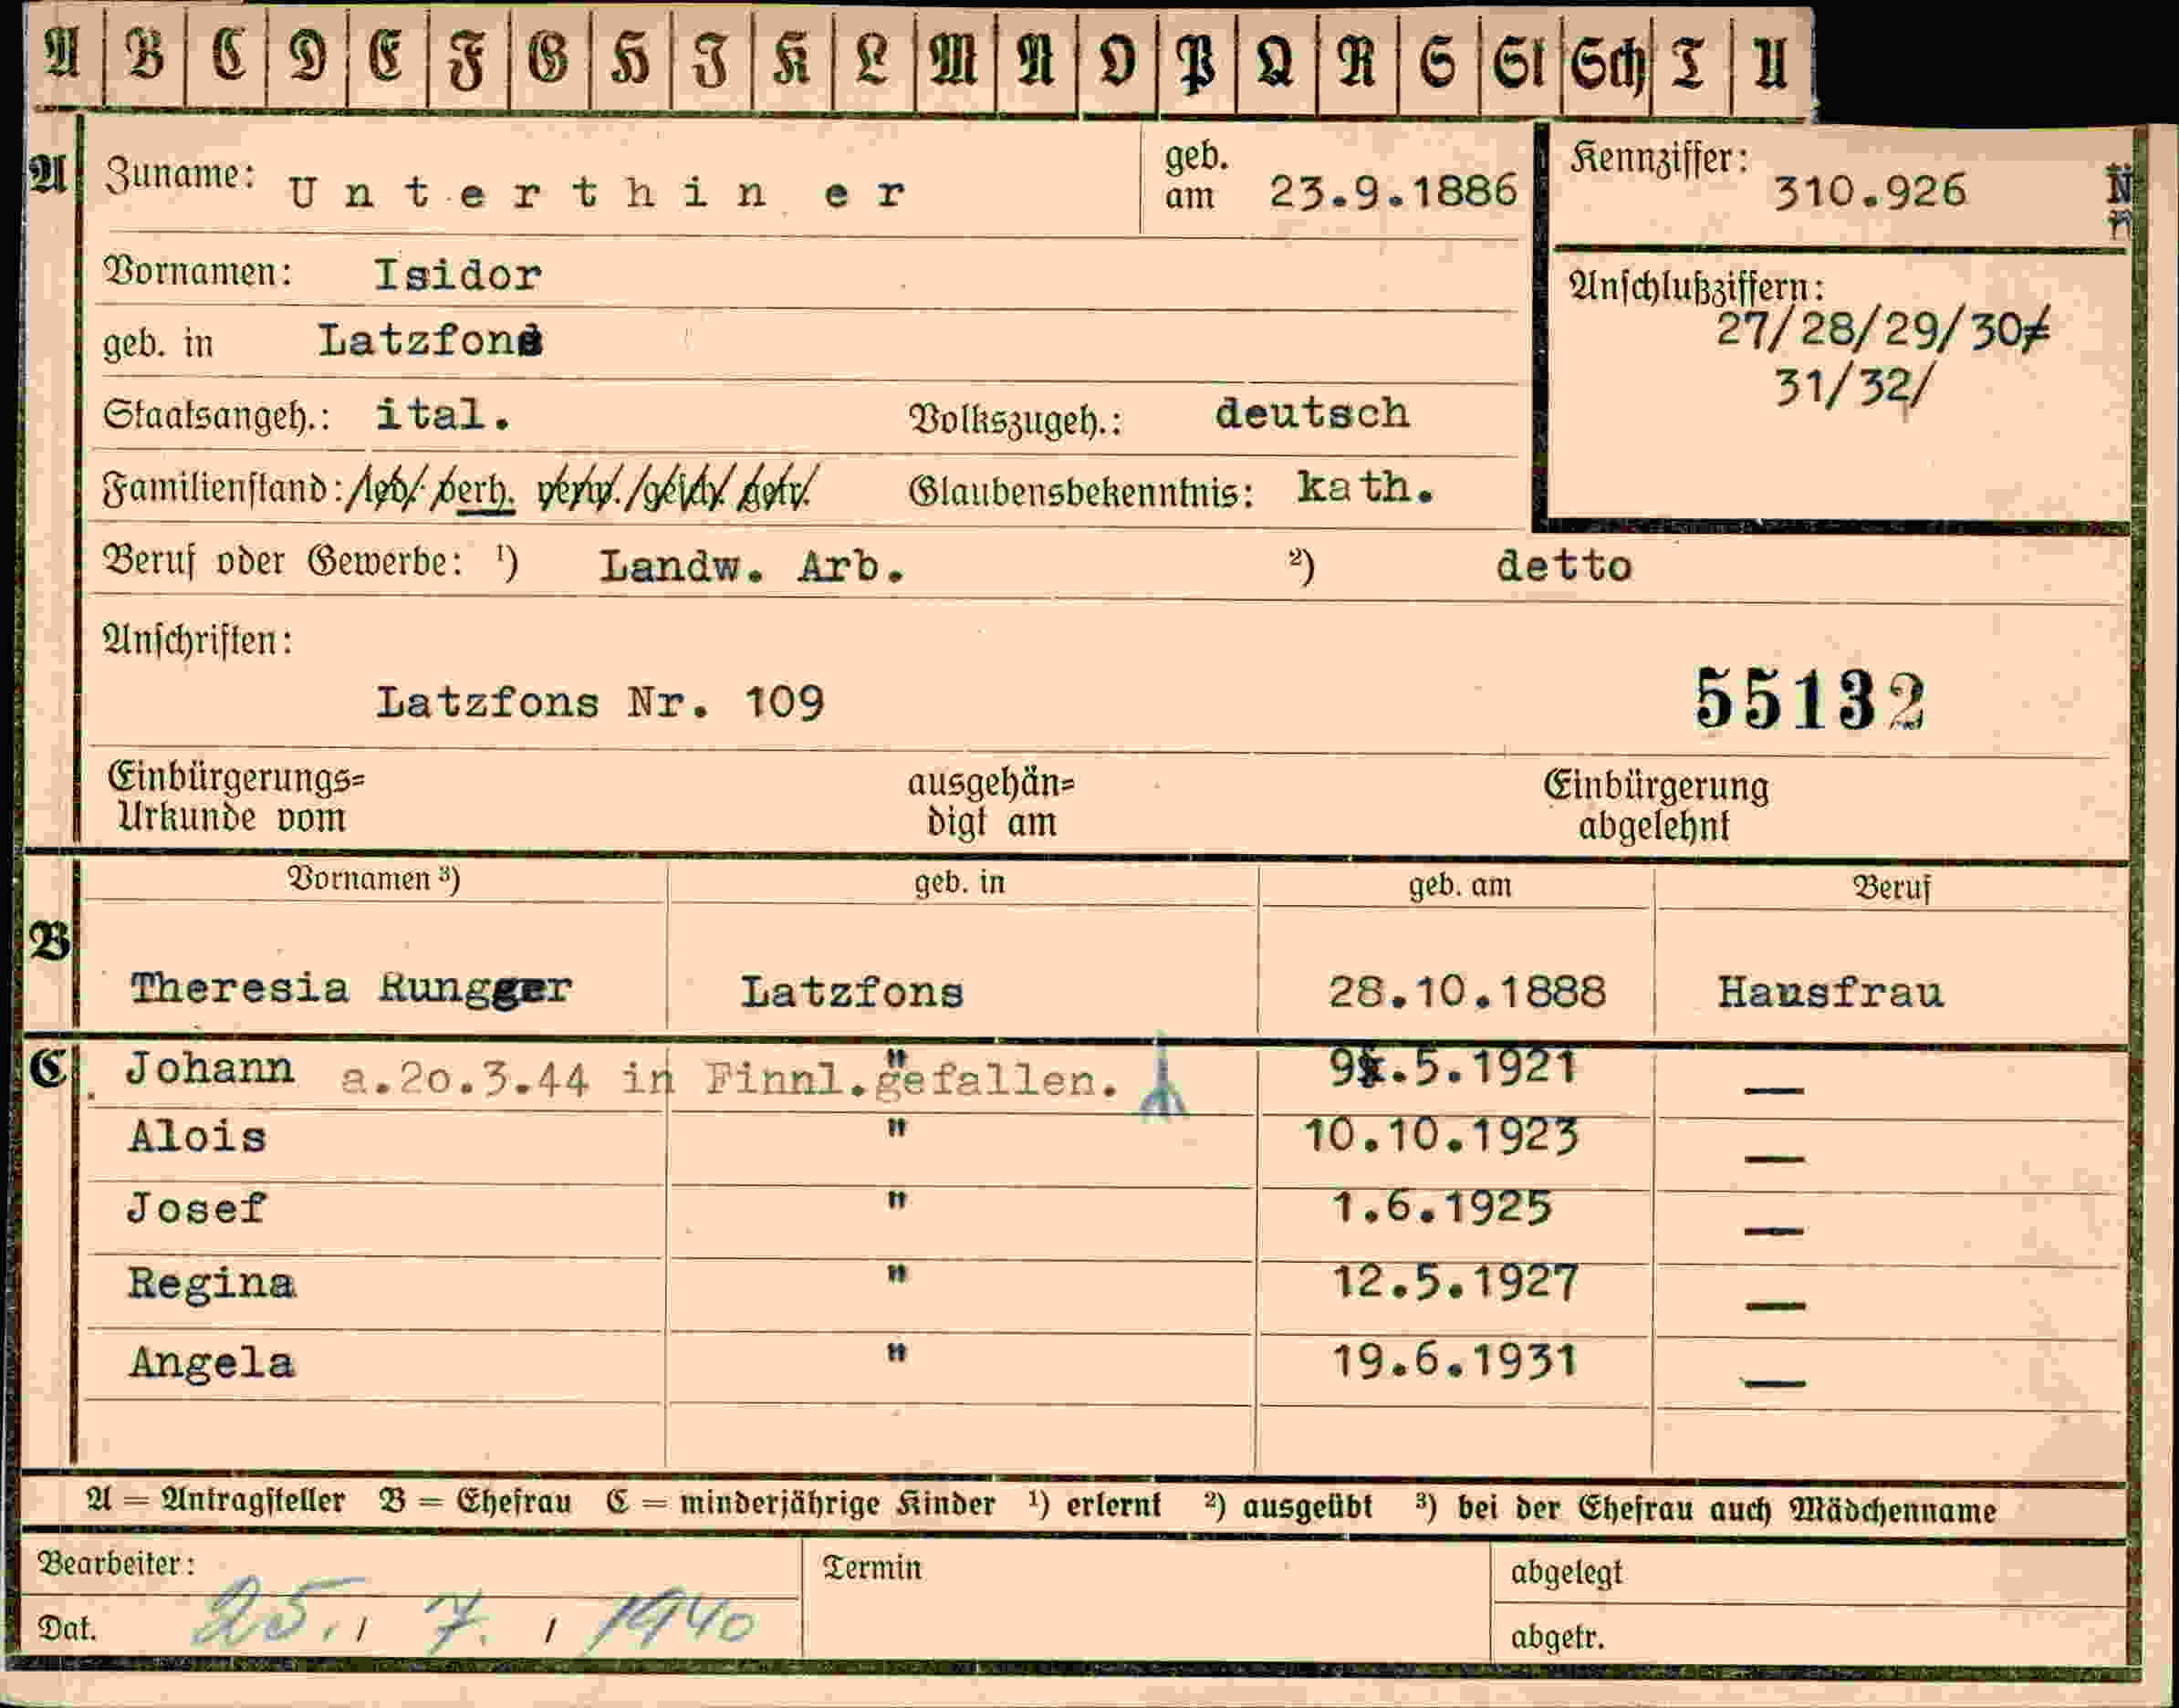 A B C D E F G H I K L M N O P Q R S St Sch T U
A Zuname: Unterthiner geb. am 23.9.1886 Kennziffer: 310.926
Vornamen: Isidor
geb. in Latzfons
Anschlußziffern: 27/28/29/30/
31/32/
Staatsangeh.: ital. Volkszugeh.: deutsch
Familienstand: led./verh. verw./gesch. getr. Glaubensbekenntnis: kath.
Beruf oder Gewerbe: ¹) Landw. Arb. ²) detto
Anschriften:
Latzfons Nr. 109 55132
Einbürgerungs= ausgehän= Einbürgerung
Urkunde vom digt am abgelehnt
Vornamen ³) geb. in geb. am Beruf
B
Theresia Rungger Latzfons 28.10.1888 Hausfrau
C Johann a.20.3.44 in Finnl.gefallen. " 9.5.1921 —
Alois " 10.10.1923 —
Josef " 1.6.1925 —
Regina " 12.5.1927 —
Angela " 19.6.1931 —
A = Antragsteller B = Ehefrau C = minderjährige Kinder ¹) erlernt ²) ausgeübt ³) bei der Ehefrau auch Mädchenname
Bearbeiter: Termin abgelegt
Dat. 25. / 7. / 1940 abgetr.